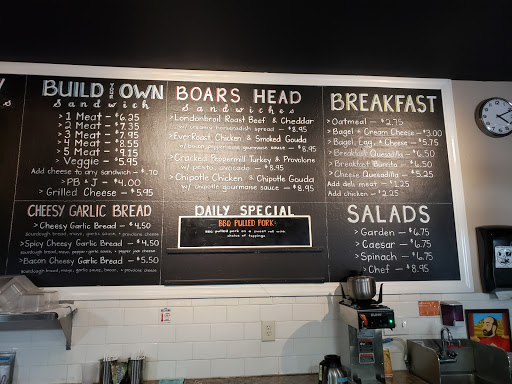 BUILD YOUR OWN
Sandwich
> 1 Meat — $6.25
> 2 Meat — $7.35
> 3 Meat — $7.95
> 4 Meat — $8.55
> 5 Meat — $9.15
> Veggie — $5.95
Add cheese to any sandwich — $.70
> PB & J — $4.00
> Grilled Cheese — $5.95
CHEESY GARLIC BREAD
> Cheesy Garlic Bread — $4.50
Sourdough bread, mayo, garlic sauce, + provolone cheese
> Spicy Cheesy Garlic Bread — $4.50
Sourdough bread, mayo, garlic sauce, + pepper jack cheese
> Bacon Cheesy Garlic Bread — $5.50
Sourdough bread, mayo, garlic sauce, bacon, + provolone cheese
BOARS HEAD
Sandwiches
> Londonbroil Roast Beef & Cheddar
w/ creamy horseradish spread — $8.95
> EverRoast Chicken & Smoked Gouda
w/ bacon, pepperhouse gourmaise sauce — $8.95
> Cracked Peppermill Turkey & Provolone
w/ pesto, avocado — $8.95
> Chipotle Chicken & Chipotle Gouda
w/ chipotle gourmaise sauce — $8.95
DAILY SPECIAL
BBQ PULLED PORK:
BBQ pulled pork on a sweet roll with
choice of toppings
BREAKFAST
Oatmeal — $2.75
> Bagel + Cream Cheese — $3.00
> Bagel, Egg, + Cheese — $5.75
> Breakfast Quesadilla — $6.50
> Breakfast Burrito — $6.50
> Cheese Quesadilla — $5.25
Add deli meat — $1.25
Add chicken — $2.25
SALADS
> Garden — $6.75
> Caesar — $6.75
> Spinach — $6.75
> Chef — $8.95